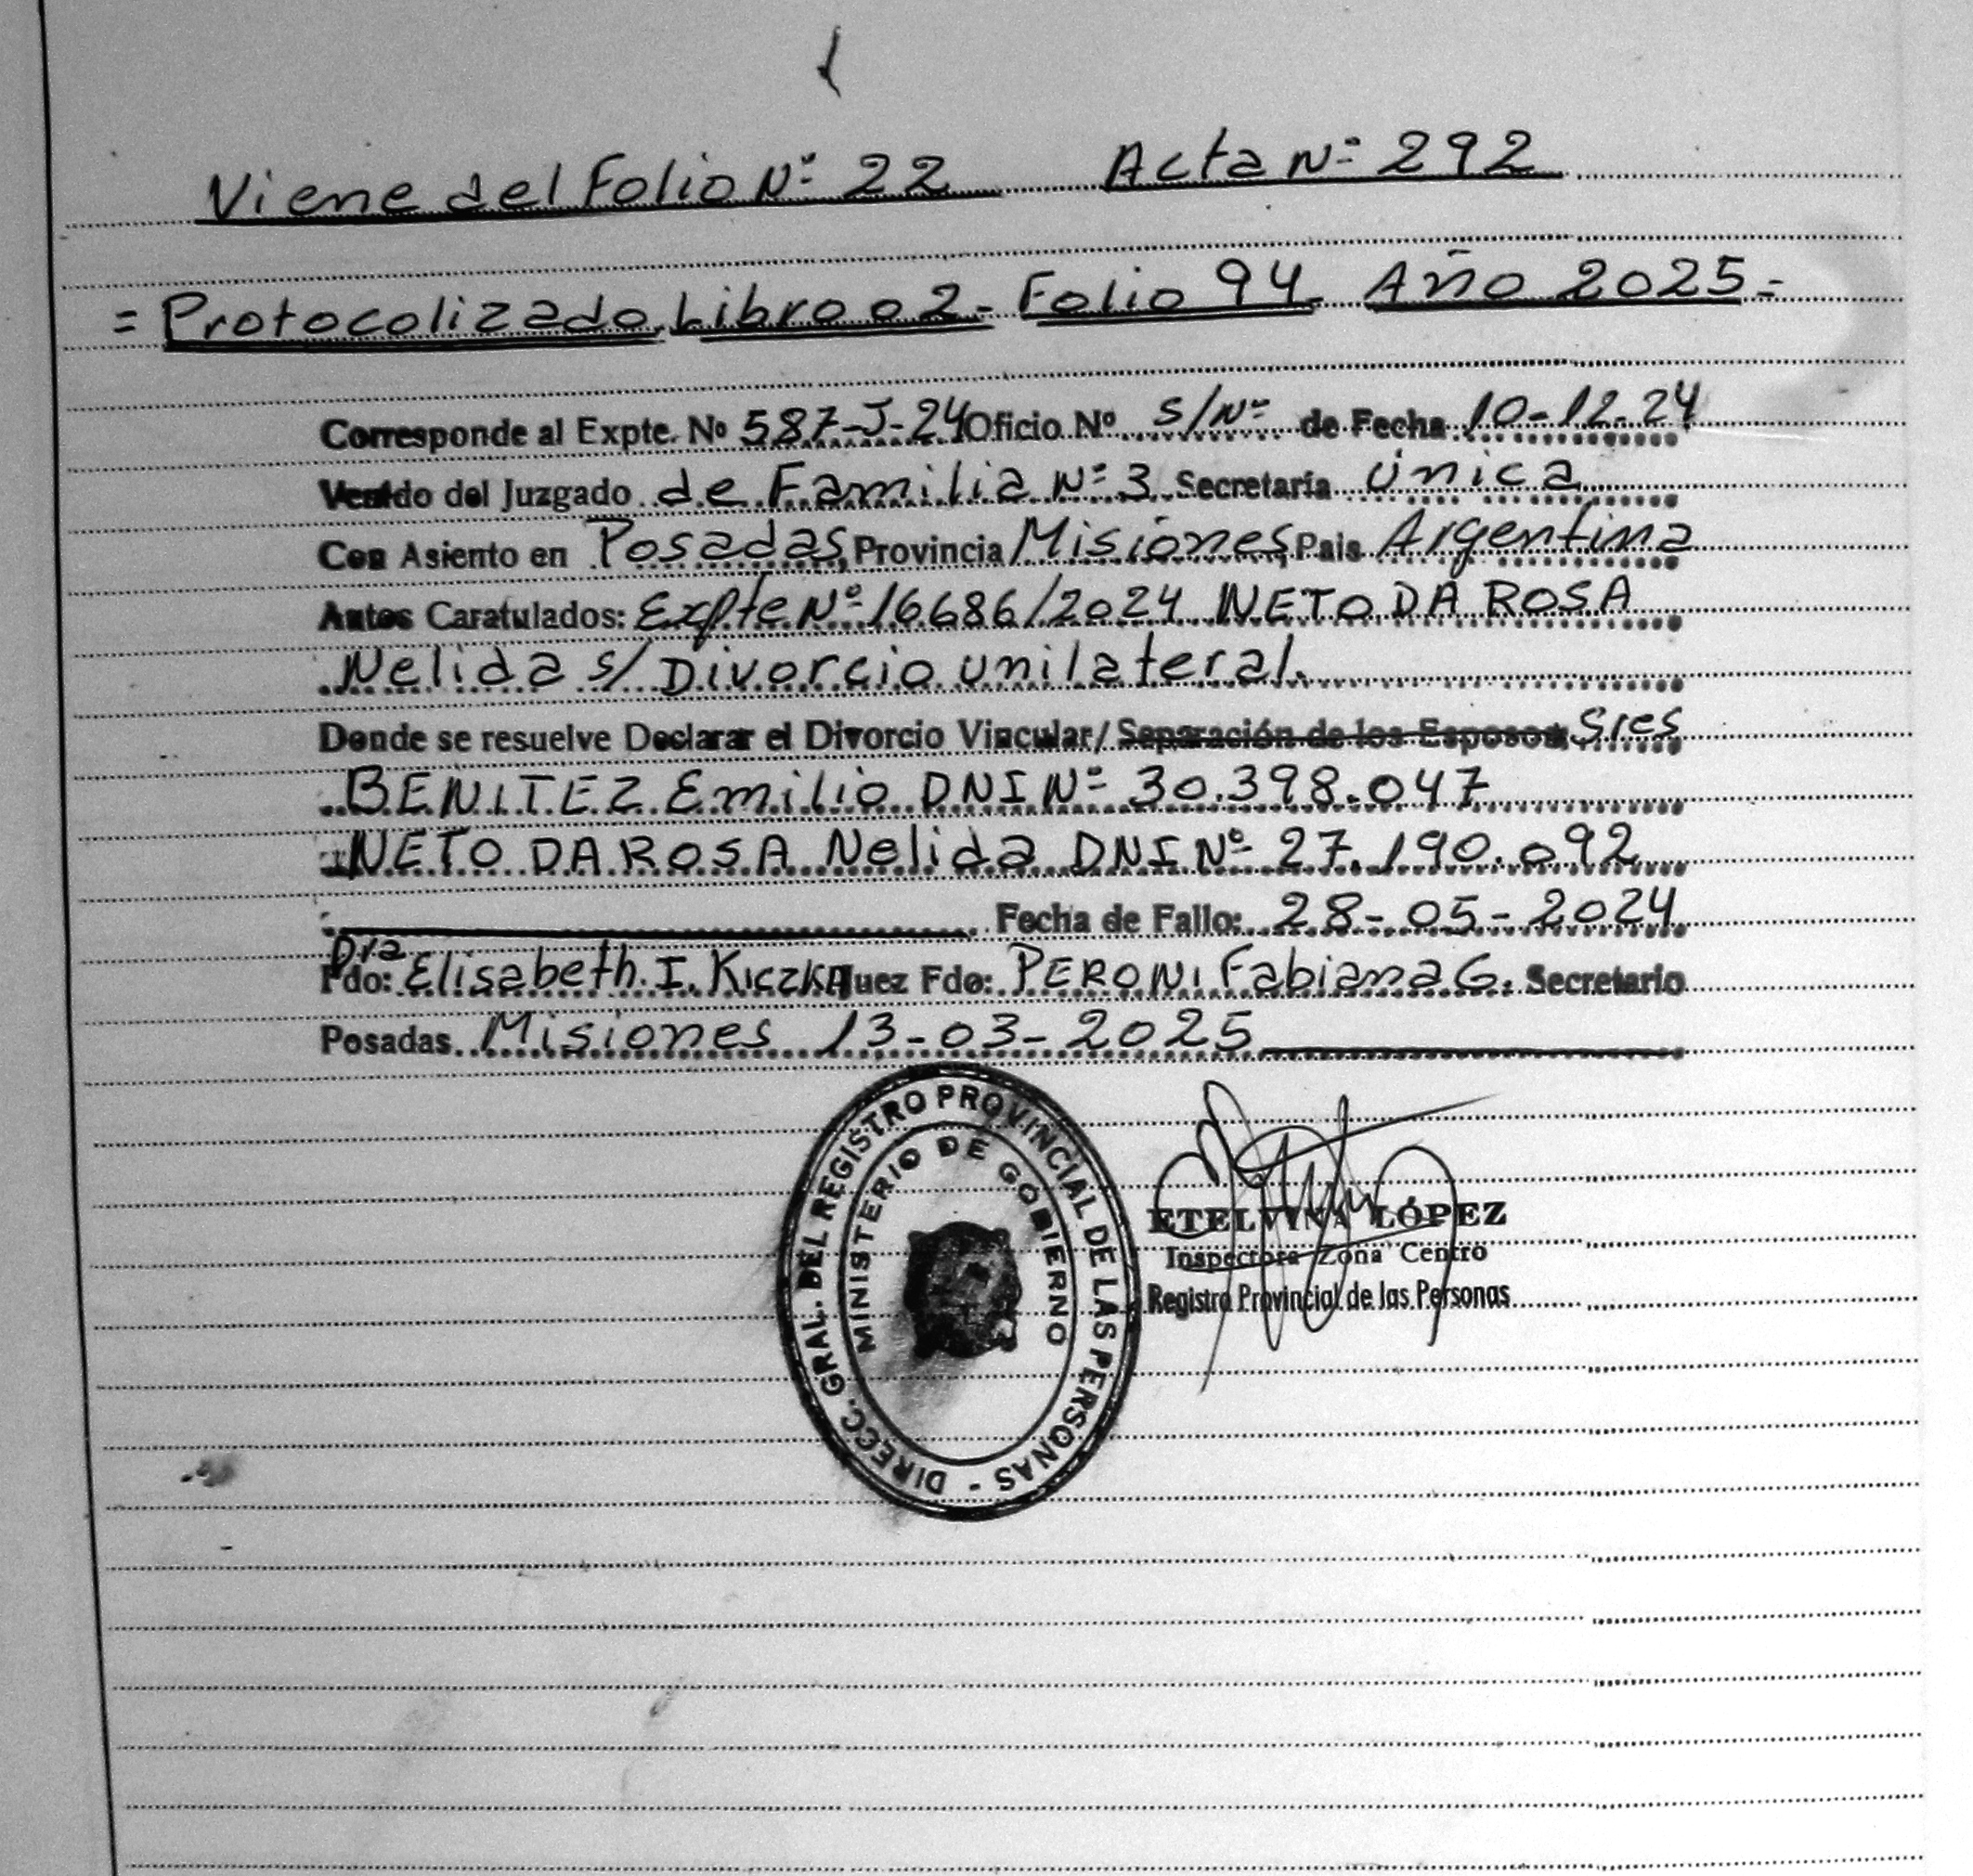 Viene del Folio Nº 22 Acta Nº 292
= Protocolizado Libro 02- Folio 94 Año 2025 =
Corresponde al Expte. Nº 587-J-24 Oficio Nº S/Nº de Fecha 10-12-24
Venido del Juzgado de Familia Nº 3 Secretaría Única
Con Asiento en Posadas, Provincia Misiones, Pais Argentina
Autos Caratulados: Expte Nº 16686/2024 NETO DA ROSA
Nelida s/ Divorcio unilateral.
Donde se resuelve Declarar el Divorcio Vincular/ Separación de los Esposos Sres
BENITEZ Emilio DNI Nº 30.398.047
NETO DA ROSA Nelida DNI Nº 27.190.092
Fecha de Fallo: 28-05-2024
Fdo: Dra Elisabeth I. Kiczka Juez Fdo: PERONI Fabiana G. Secretario
Posadas Misiones 13-03-2025
DIRECC. GRAL. DEL REGISTRO PROVINCIAL DE LAS PERSONAS -
MINISTERIO DE GOBIERNO
ETELVINA LÓPEZ
Inspectora Zona Centro
Registro Provincial de las Personas